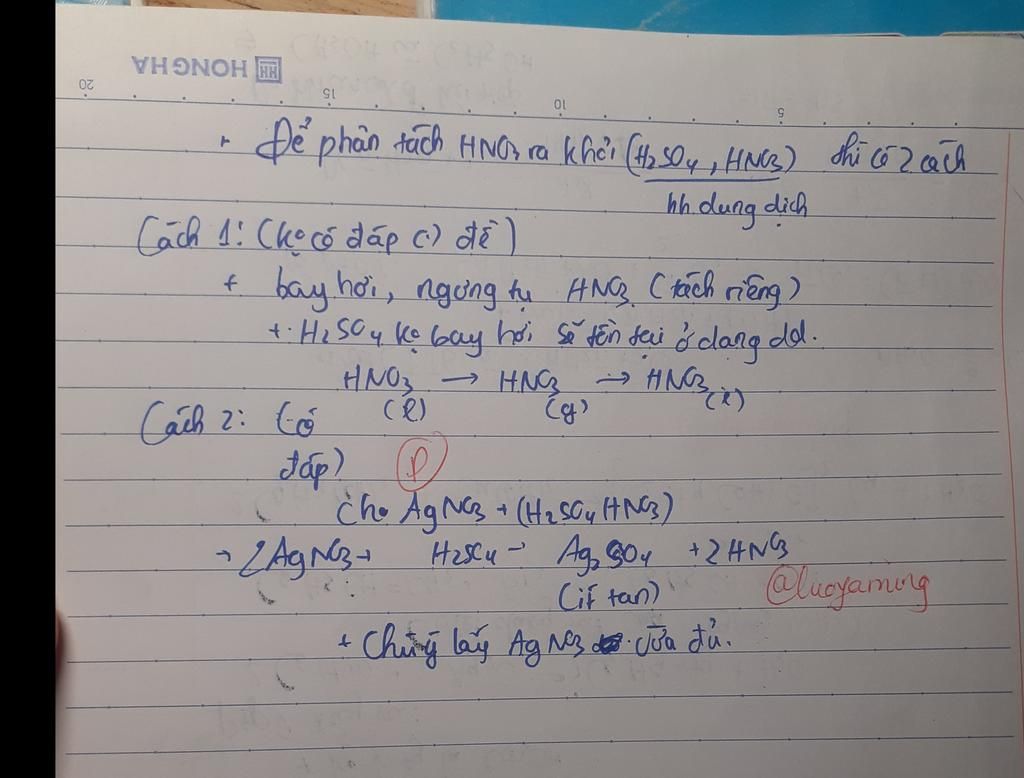 HONG HA
20 15 10 5
+ Để phân tách HNO3 ra khỏi (H2SO4, HNO3) thì có 2 cách
hh dung dịch
Cách 1: (ko có đáp
+ bay hơi, ngưng tụ HNO3 (tách riêng)
+ H2SO4 ko bay hơi sẽ tồn tại ở dạng dd.
HNO3 → HNO3 → HNO3
(l) (g) (l)
Cách 2: (có
đáp)
Cho AgNO3 + (H2SO4 HNO3)
→ 2AgNO3 + H2SO4 → Ag2SO4 + 2HNO3
(ít tan) @luoyaming
+ Chú ý lấy AgNO3 vừa đủ.